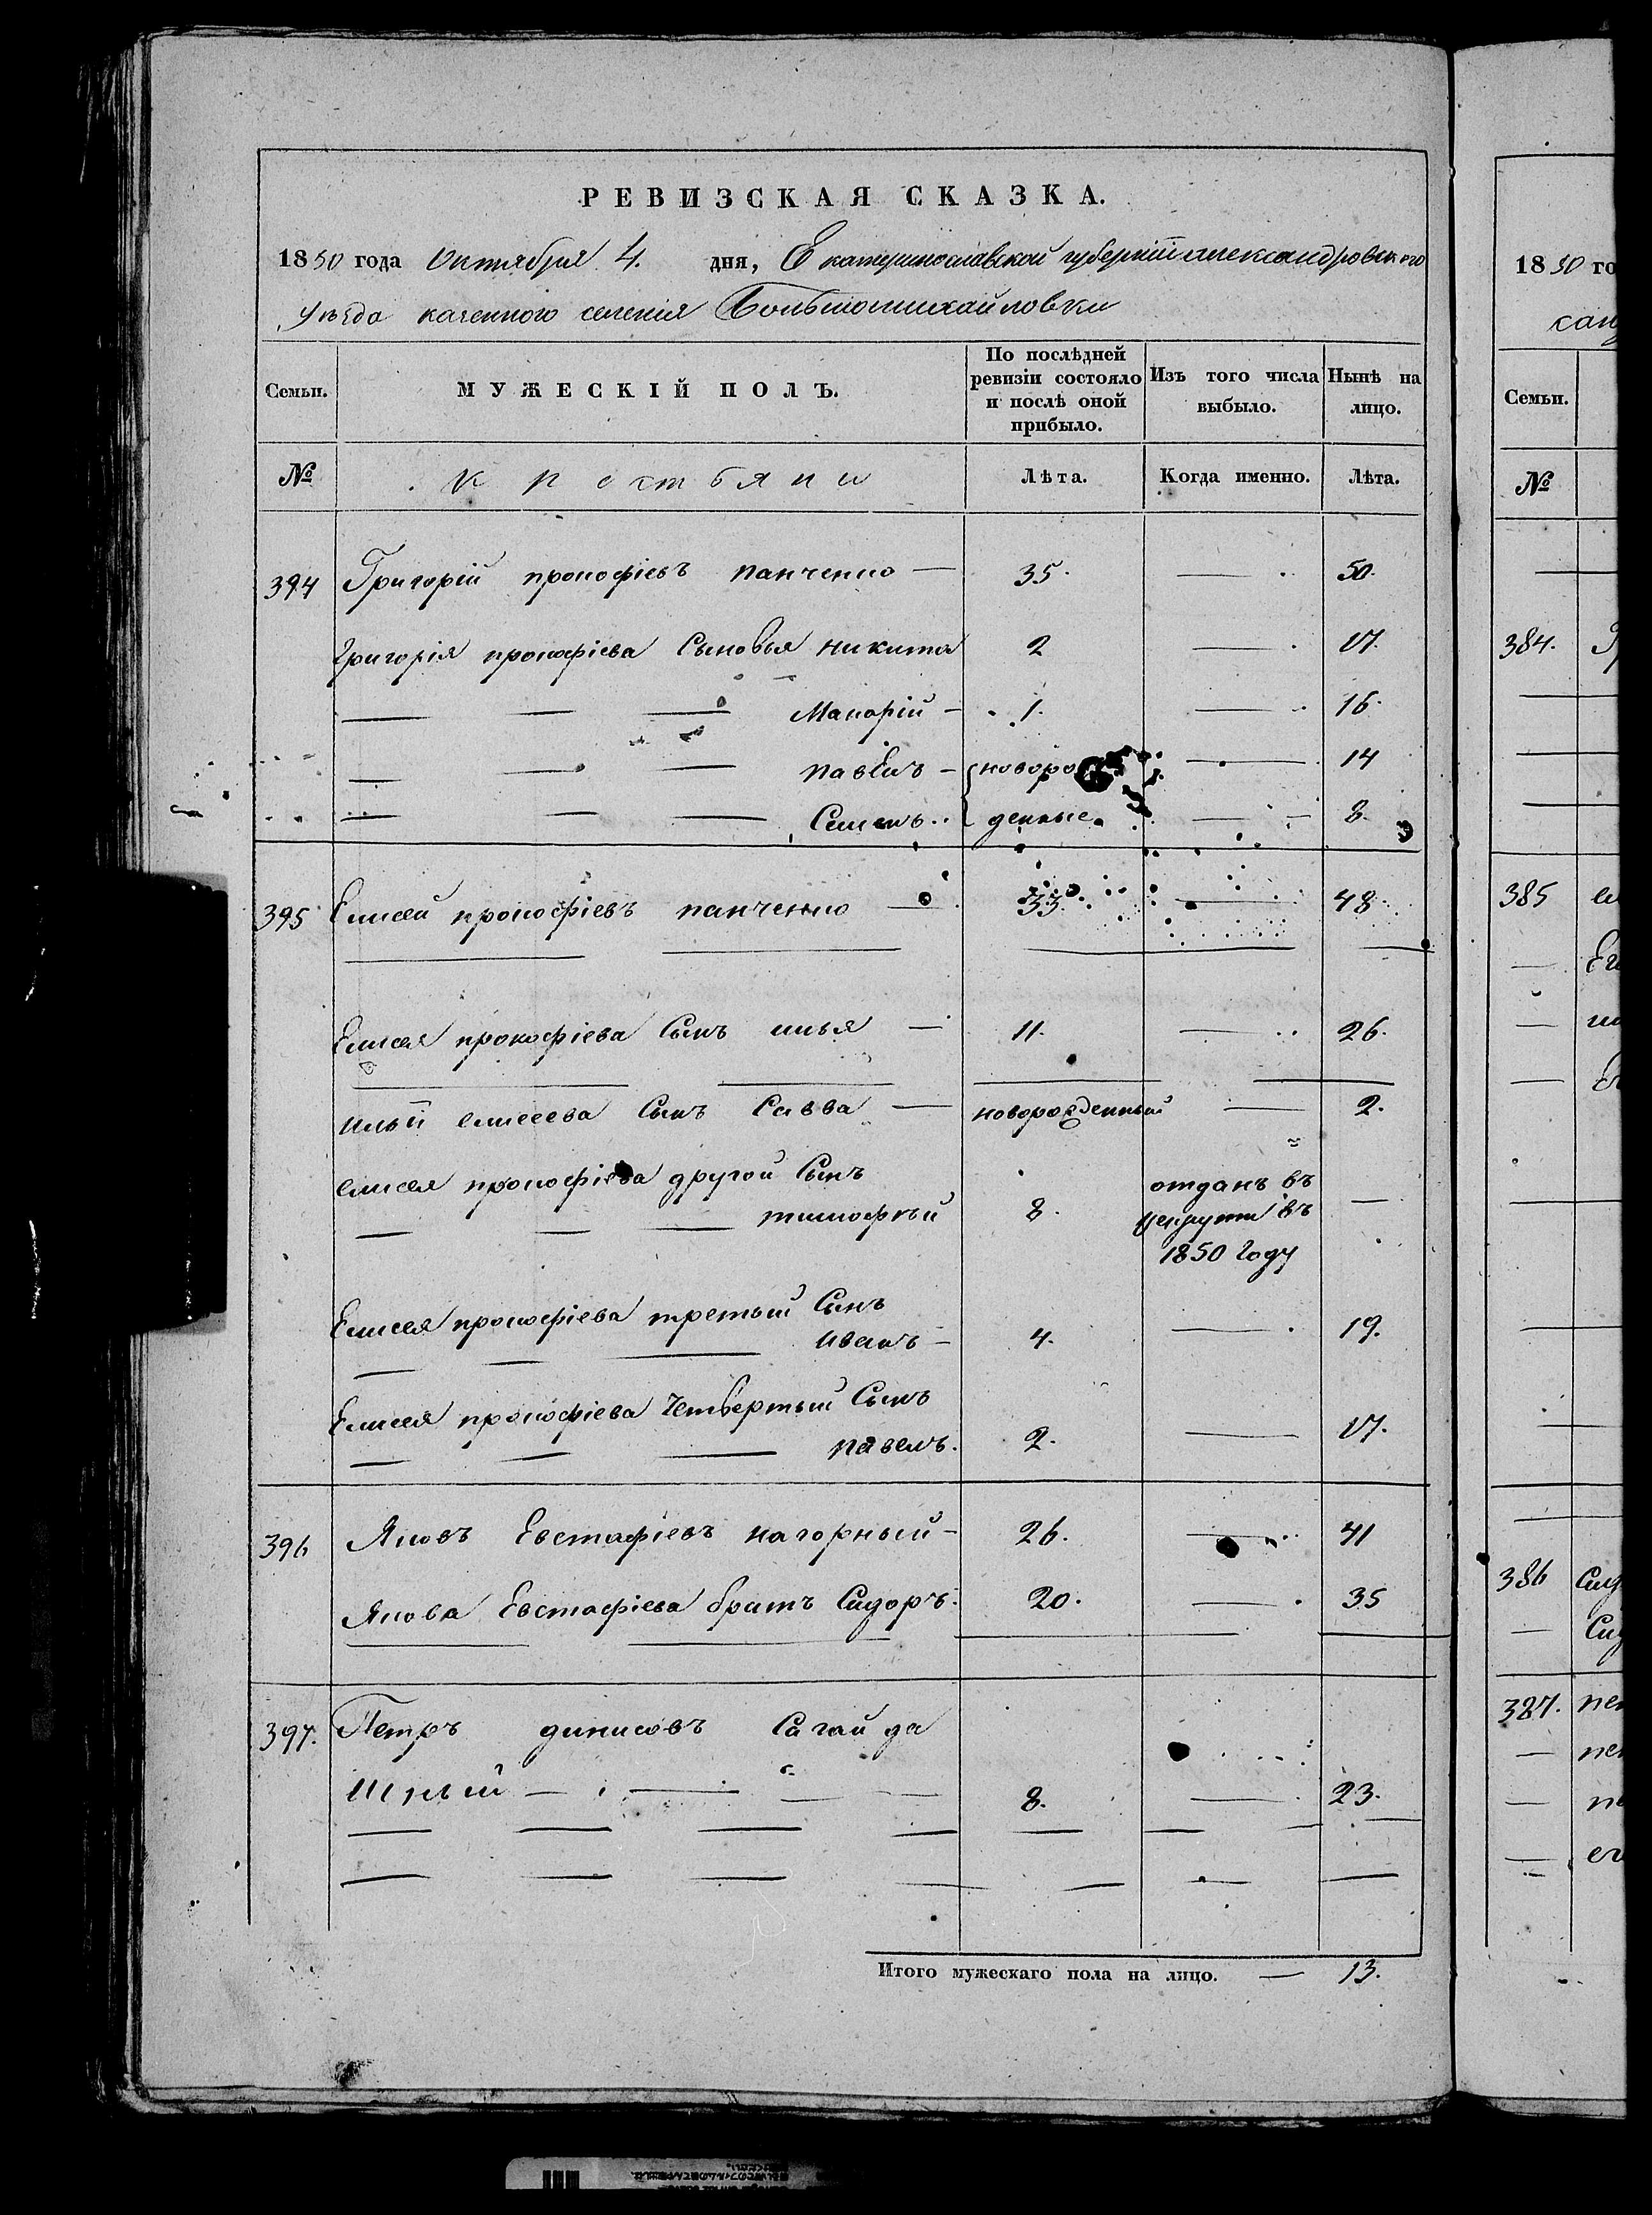 РЕВИЗСКАЯ СКАЗКА.
1850 года Октября 4. дня, Екатеринославской губерніи александровского
Уѣзда казенного селенія Большомихайловки
Семьи. МУЖЕСКІЙ ПОЛЪ. По послѣдней ревизіи состояло и послѣ оной прибыло. Изъ того числа выбыло. Нынѣ на лицо.
№ крестьяни Лѣта. Когда именно. Лѣта.
394 Григорій прокофіевъ панченко — 35. — 50.
григорія прокофіева Сыновья никита 2 — 17.
— — — Макарій — 1. — 16.
— — — павелъ — новорож — 14
— — — Семенъ денные — 8.
395 Елисей прокофіевъ панченко — 33. — 48
Елисея прокофіева Сынъ илья — 11. — 26.
ильи елисеева Сынъ Савва — новорожденный — 2.
елисея прокофіева другой Сынъ отданъ въ
— — — тимофѣй 8. рекруты въ —
1850 году
Елисея прокофіева третьий Сынъ
— — — иванъ — 4. — 19.
Елисея прокофіева Четвертый Сынъ
— — — павелъ. 2. — 17.
396 Яковъ Евстафіевъ нагорный — 26. — 41
Якова Евстафіева братъ Сидоръ. 20. — 35
397. Петръ динисовъ Сагайда
шный — — — — 8. — 23.
Итого мужескаго пола на лицо. — 13.
1850 го
Семьи.
№
384.
385
386
387.